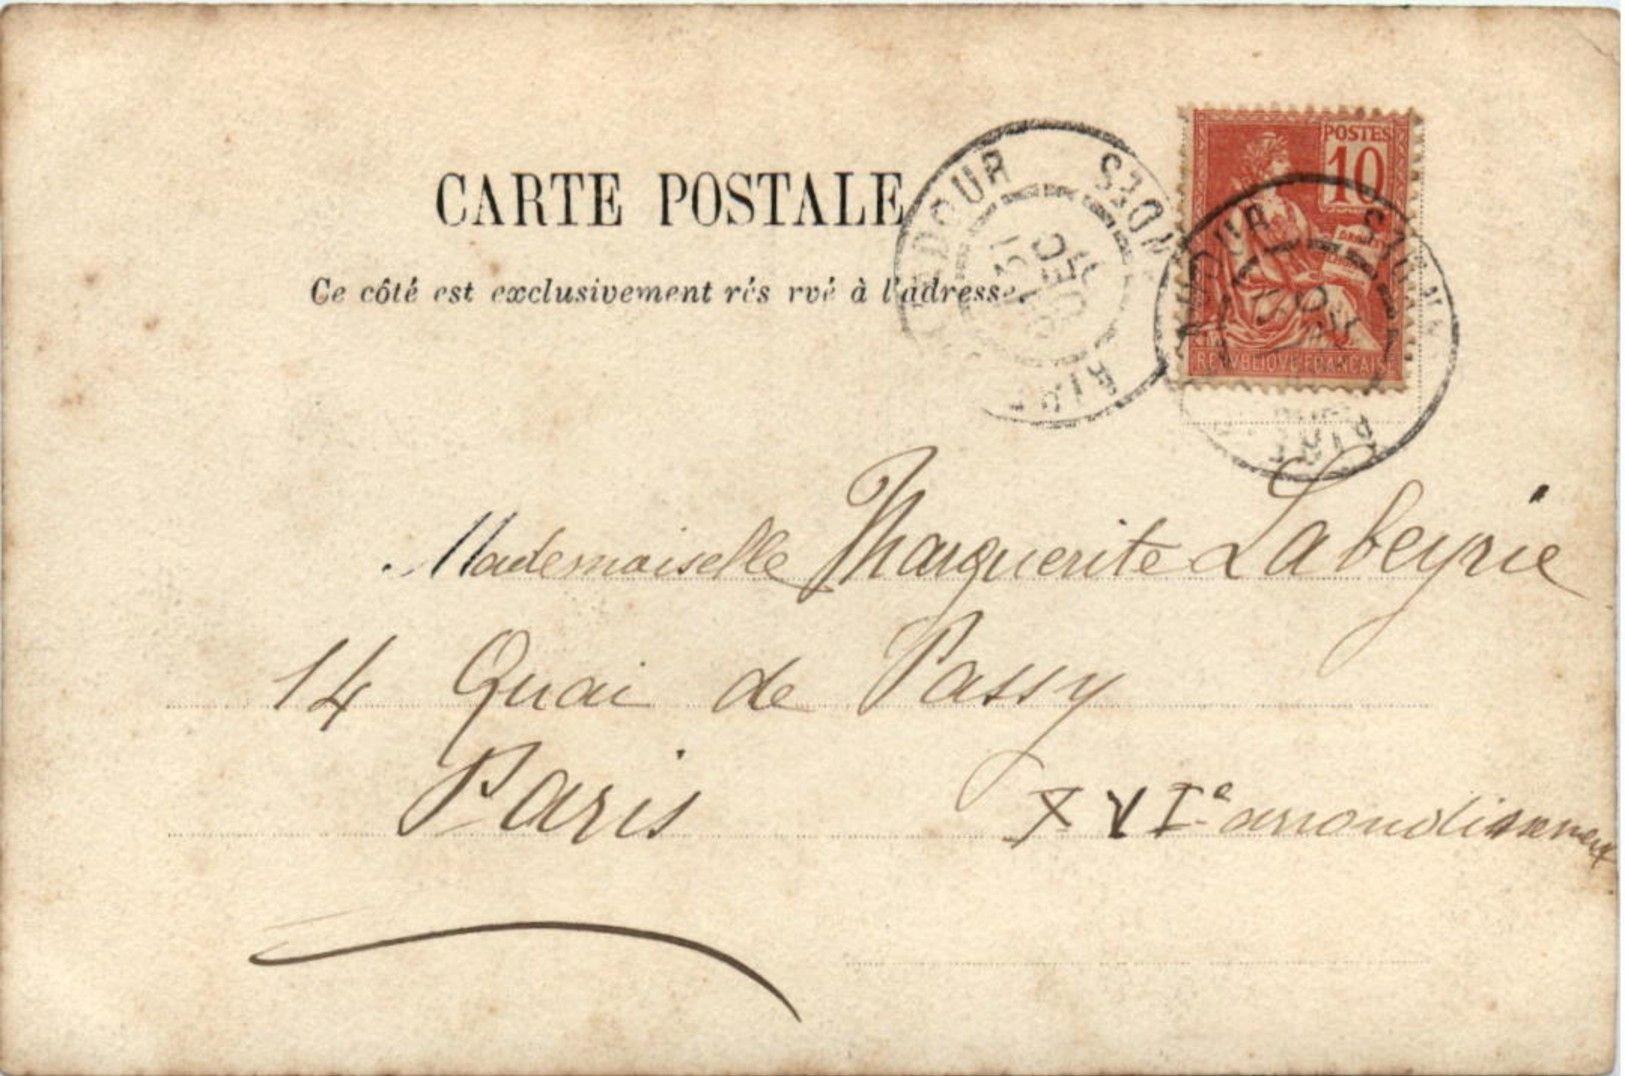 CARTE POSTALE
Ce côté est exclusivement rés rvé à l'adresse.
POSTES
10
REPVBLIQVE FRANÇAISE
DEC
Mademoiselle Marguerite Labeyrie
14 Quai de Passy
Paris XVIe arrondissement